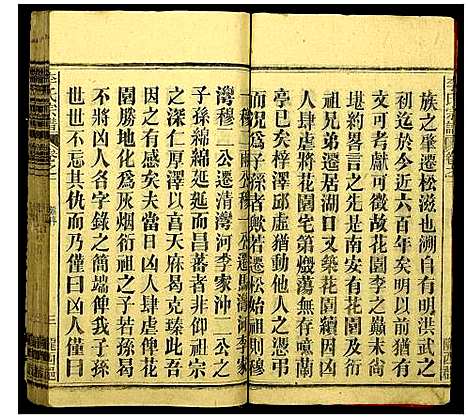 族之肇遷松滋也溯自有明洪武之
初迄於今近六百年矣明以前猶有
文可考獻可徵故花園李之巔末尚
堪約畧言之先是南安有花園及衍
祖兄弟還居湖口又築花園續因凶
人肆虐將花園宅第燬蕩無存噫蘭
亭已矣梓澤邱虛猶動他人之憑弔
而況爲子孫者歟若遷松始祖則穆
灣穆二公遷清灣河李家沖二公之
子孫綿綿延延而昌蕃者非衍祖宗
之深仁厚澤以莒天庥曷克臻此吾
因之有感矣夫當日凶人肆虐俾花
園勝地化爲灰烟衍祖之子若孫曷
不將凶人名字錄之簡端俾我子孫
世世不忘其仇而乃僅曰凶人僅曰
李氏宗譜